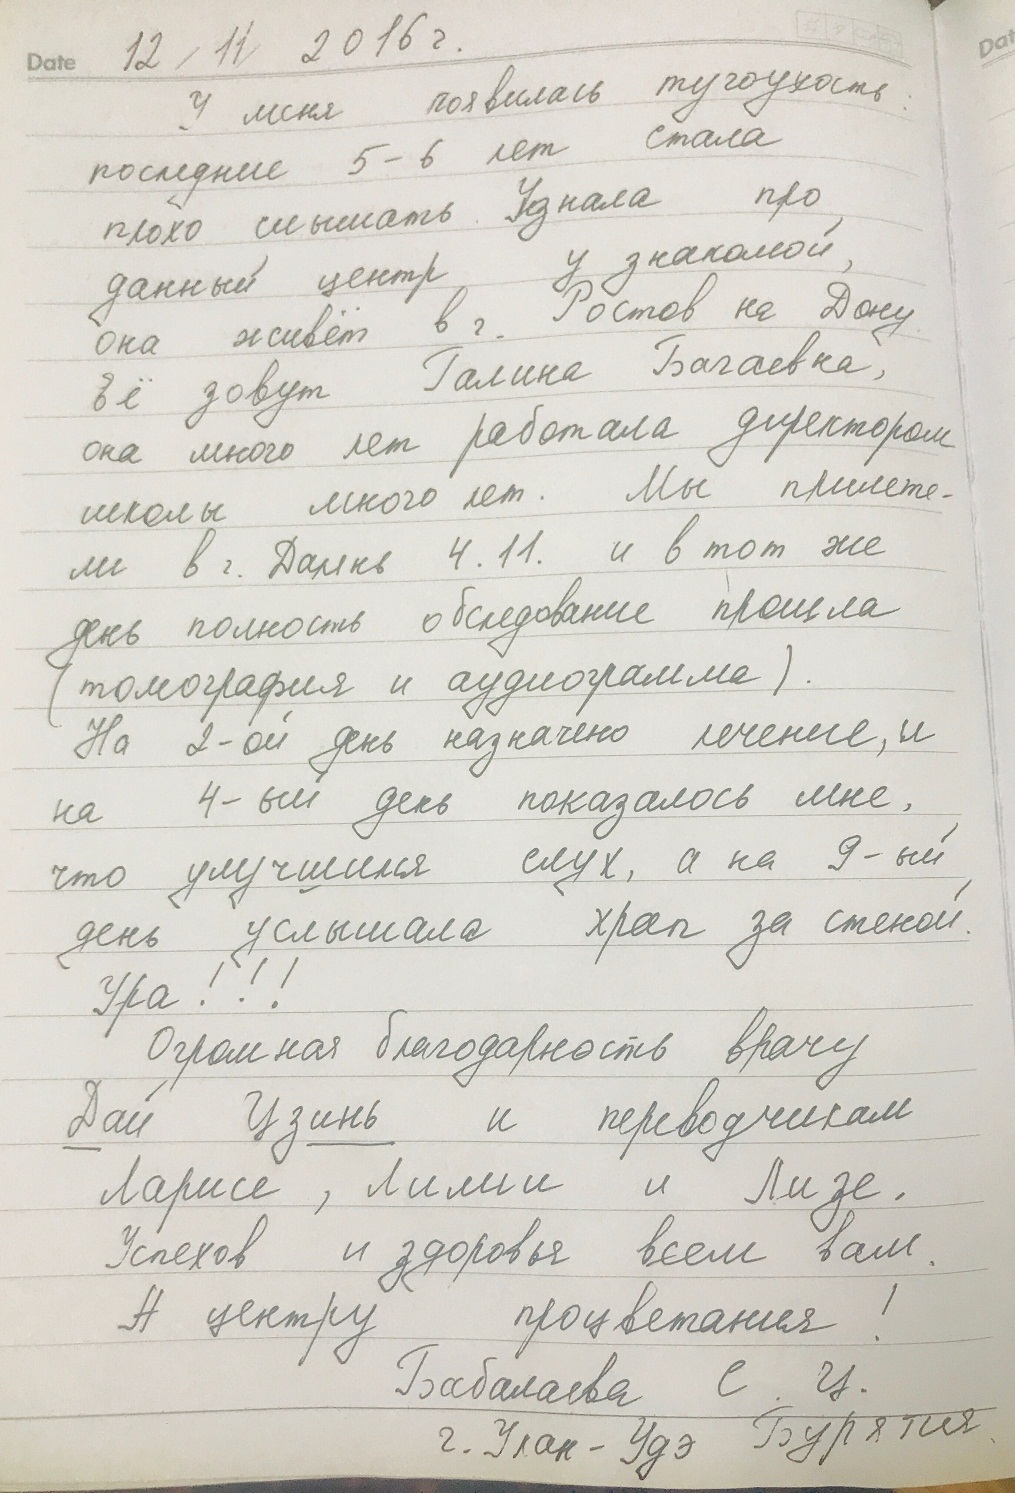 Date 12/11 2016 г.
У меня появилась тугоухость
последние 5-6 лет стала
плохо слышать. Узнала про
данный центр у знакомой,
она живёт в г. Ростов на Дону
Её зовут Галина Багаевна,
она много лет работала директором
школы много лет. Мы прилете-
ли в г. Далянь 4.11. и в тот же
день полность обследование прошла
(томография и аудиограмма).
На 2-ой день назначено лечение, и
на 4-ый день показалось мне,
что улучшился слух, а на 9-ый
день услышала храп за стеной.
Ура!!!
Огромная благодарность врачу
Дай Цзинь и переводчикам
Ларисе, Лилии и Лизе.
Успехов и здоровья всем вам.
А центру процветания!
С. Ц.
г. Улан-Удэ Бурятия